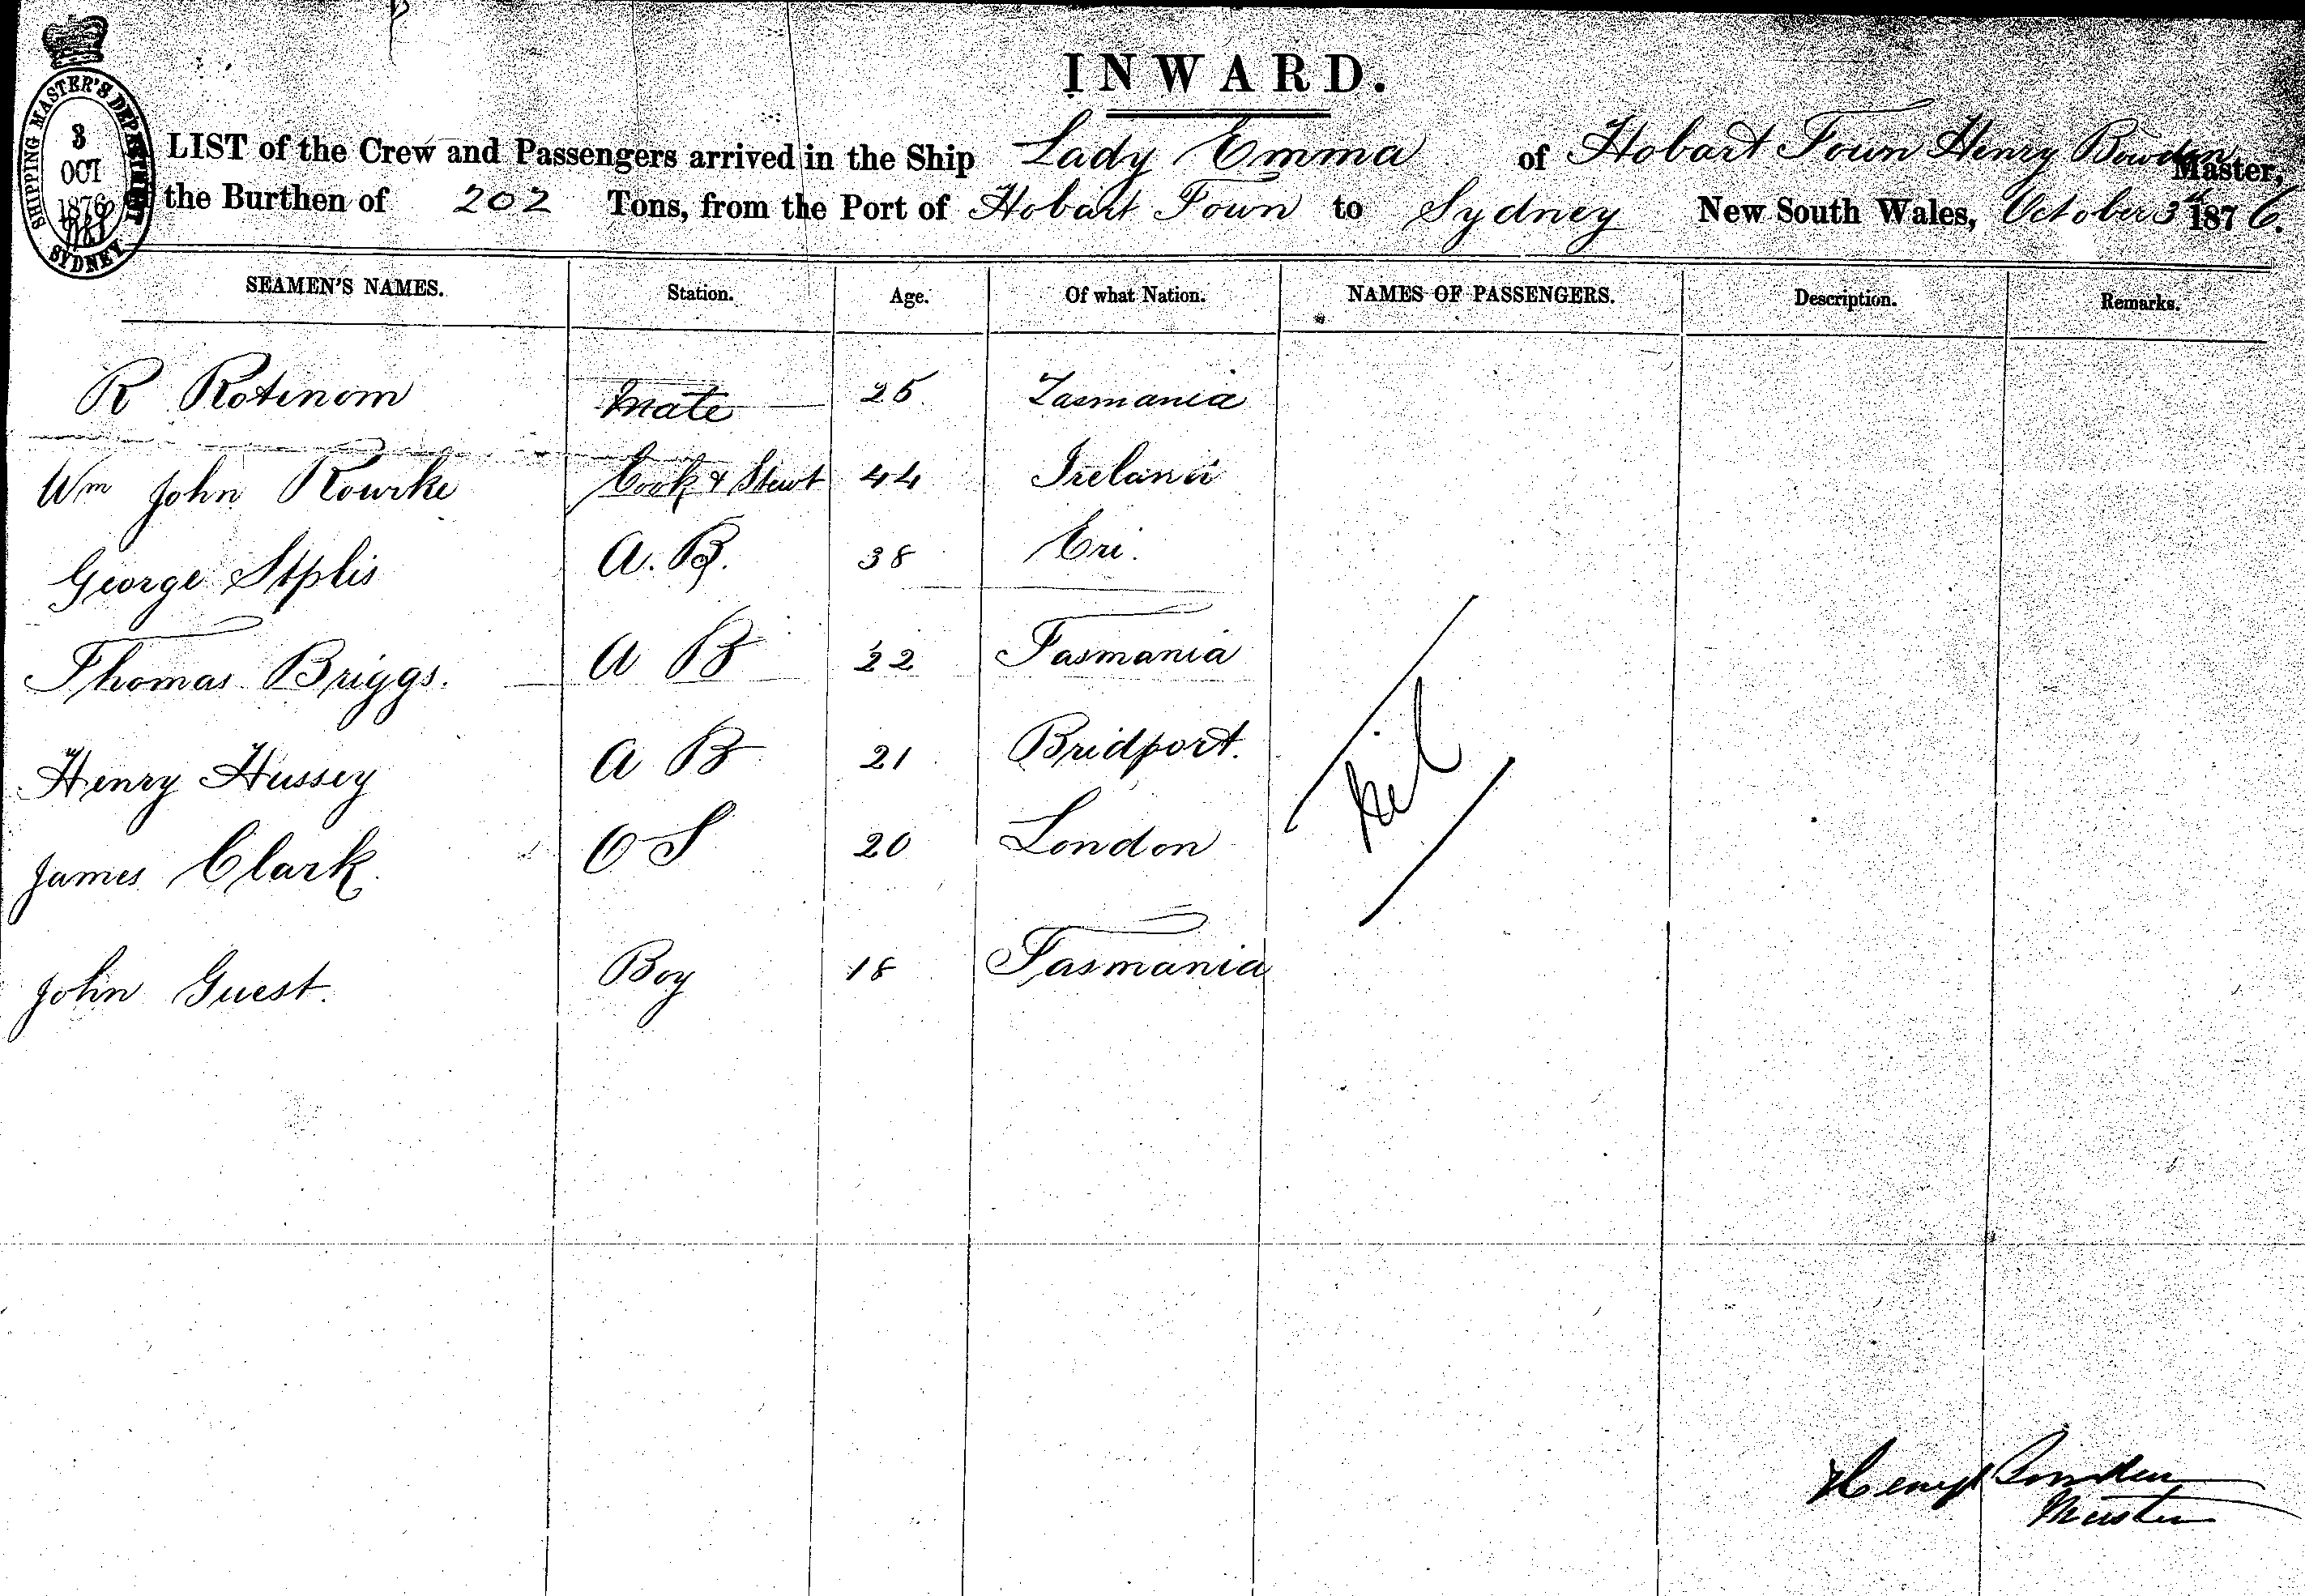 SHIPPING MASTER'S DEPARTMENT
3
OCT
1876
SYDNEY
INWARD.
LIST of the Crew and Passengers arrived in the Ship Lady Emma of Hobart Town Henry Bowden Master,
the Burthen of 202 Tons, from the Port of Hobart Town to Sydney New South Wales, October 3d 1876.
SEAMEN'S NAMES. Station. Age. Of what Nation. NAMES OF PASSENGERS. Description. Remarks.
R Rotinom Mate 25 Tasmania
Wm John Rourke Cook & Stewt 44 Ireland
George Stplis A. B. 38 Eri.
Thomas Briggs. A B 22 Tasmania
Henry Hussey A B 21 Bridport.
James Clark O S 20 London
John Guest. Boy 18 Tasmania
Nil
Henry Bowden
Master